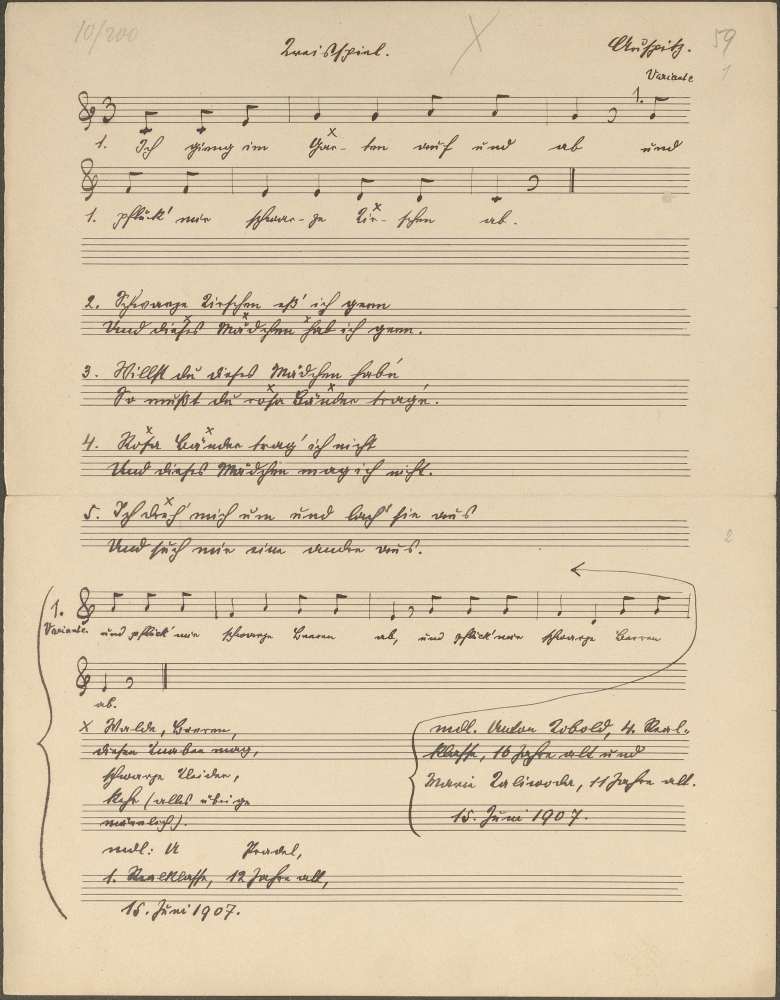 10/200
Kreisspiel.
Auspitz.
59
Variante
1
1.
3
1. Ich gieng im Gar- ten auf und ab und
1. pflück' mir schwar-ze Kir- schen ab.
2. Schwarze Kirschen eß' ich gern
Und dieses Mädchen hab ich gern.
3. Willst du dieses Mädchen habe'
So mußt du rosa Bänder trage'.
4. Rosa Bänder trag' ich nicht
Und dieses Mädchen mag ich nicht.
5. Ich dreh' mich um und lach' sie aus
Und such mir eine andre aus.
2
1.
Variante. und pflück' mir schwarze Beeren ab, und pflück' mir schwarze Beeren
ab.
x Walde, Beeren,
diesen Knaben mag,
schwarze Kleider,
kehr (alles übrige
männlich).
mdl: A Pradel,
1. Realklasse, 12 Jahre alt,
15. Juni 1907.
mdl. Anton Kobold, 4. Real-
klasse, 16 Jahre alt und
Marie Kaliwoda, 11 Jahre alt.
15. Juni 1907.